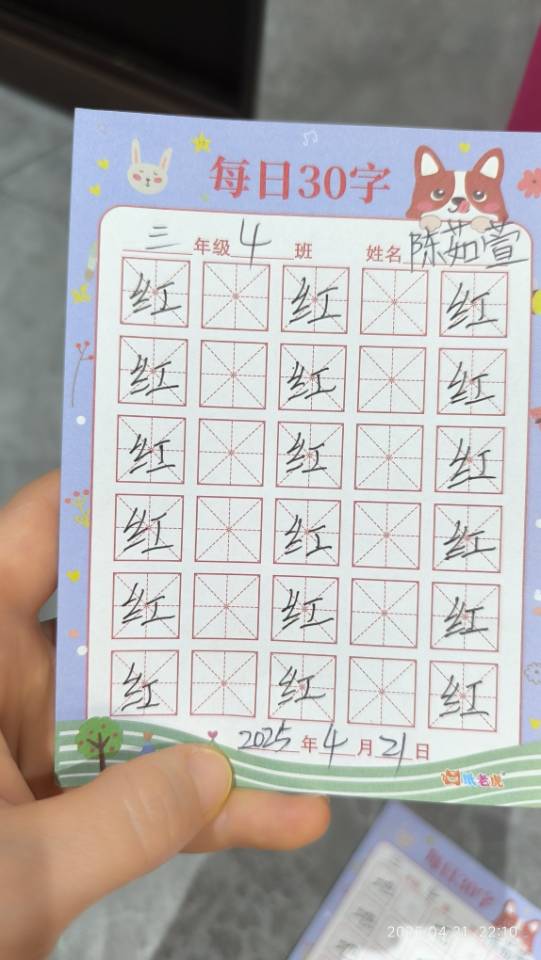 每日30字
三年级4班 姓名陈茹萱
红 红 红
红 红 红
红 红 红
红 红 红
红 红 红
红 红 红
2025年4月21日
纸老虎
每日30字
2025.04.21 22:10